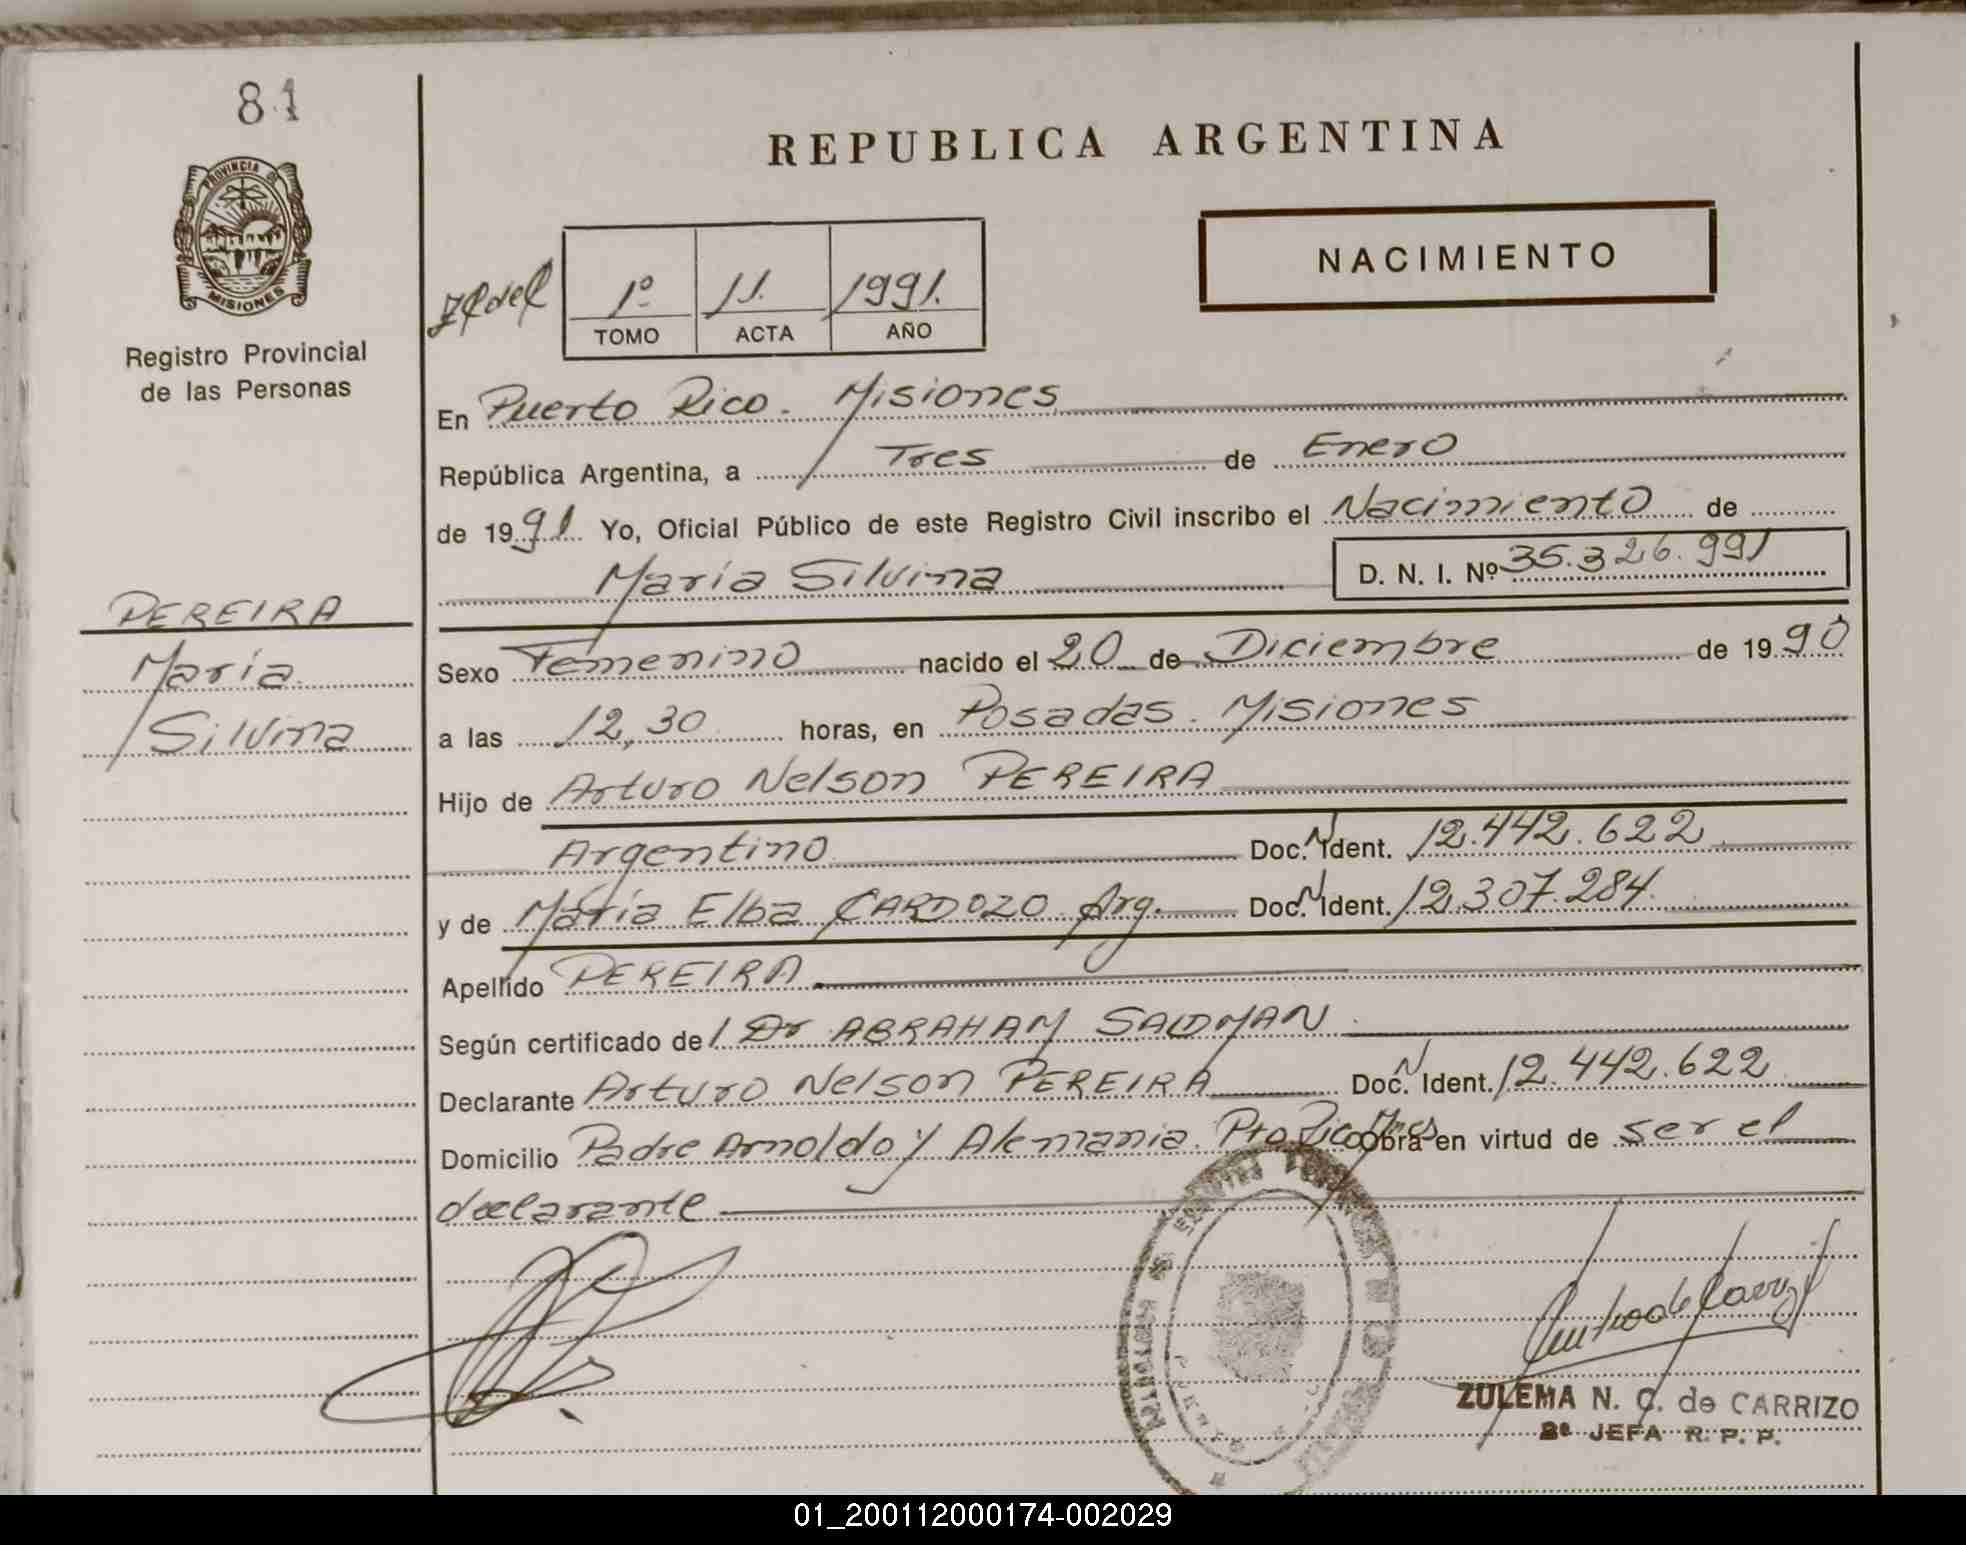 81
REPUBLICA ARGENTINA
PROVINCIA DE
MISIONES
Registro Provincial
de las Personas
NACIMIENTO
1º 11. 1991.
TOMO ACTA AÑO
En Puerto Rico. Misiones
República Argentina, a Tres de Enero
de 1991 Yo, Oficial Público de este Registro Civil inscribo el Nacimiento de
María Silvina
D. N. I. Nº 35.326.991
PEREIRA
María
Silvina
Sexo Femenino nacido el 20 de Diciembre de 1990
a las 12,30 horas, en Posadas. Misiones
Hijo de Arturo Nelson PEREIRA
Argentino Doc. Ident. 12.442.622
y de María Elba CARDOZO Arg. Doc. Ident. 12.307.284
Apellido PEREIRA
Según certificado de Dr ABRAHAM SALDMAN
Declarante Arturo Nelson PEREIRA Doc. Ident. 12.442.622
Domicilio Padre Arnoldo y Alemania. Pto Rico obra en virtud de ser el
declarante
ZULEMA N. C. de CARRIZO
2º JEFA R. P. P.
01_200112000174-002029